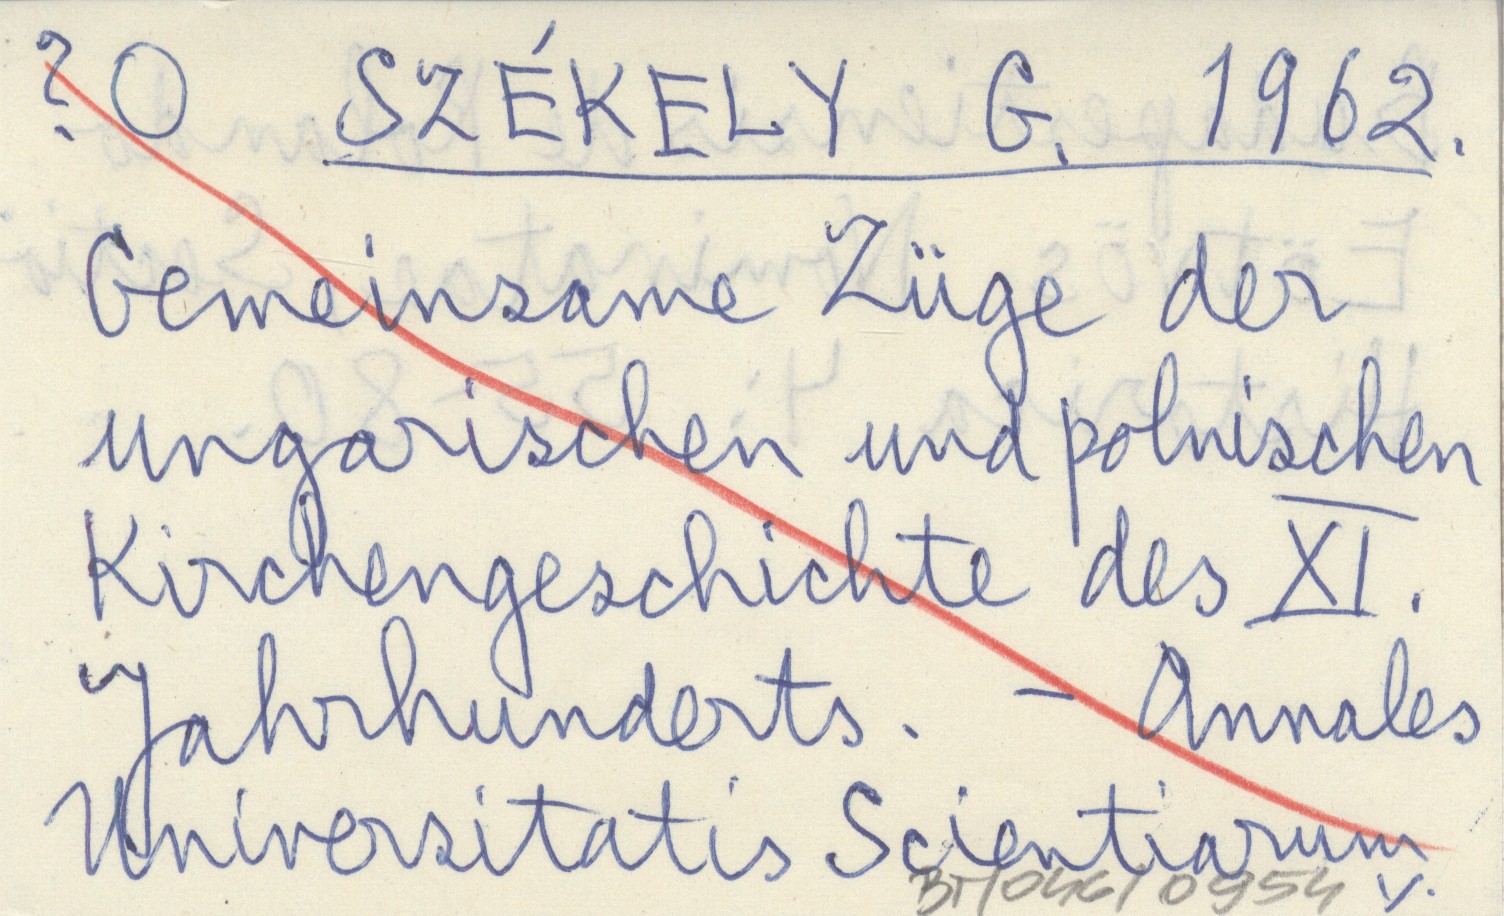 ? O SZÉKELY G. 1962.
Gemeinsame Züge der
ungarischen und polnischen
Kirchengeschichte des XI.
Jahrhunderts. – Annales
Universitatis Scientiarum
BT/046/0954 v.